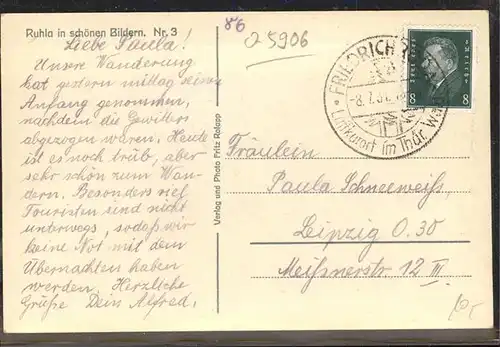 Ruhla in schönen Bildern. Nr. 3
86
25906
Liebe Paula!
Unsere Wanderung
hat gestern mittag seinen
Anfang genommen,
nachdem die Gewitter
abgezogen waren. Heute
ist es noch trüb, aber
sehr schön zum Wan-
dern. Besonders viel
Touristen sind nicht
unterwegs, sodaß wir
keine Not mit dem
Übernachten haben
werden. Herzliche
Grüße Dein Alfred.
Verlag und Photo Fritz Rolapp
FRIEDRICH
-8.7.
Luftkurort im Thür. Wald
8 8
Fräulein
Paula Schneeweiß,
Leipzig O.30
Meißnerstr. 12 III